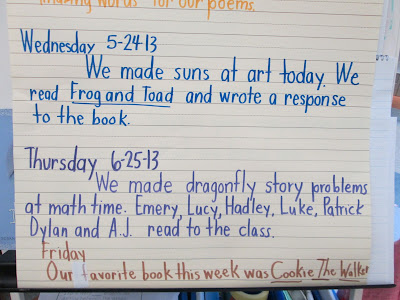 words" for our poems.
Wednesday 5-24-13
We made suns at art today. We
read Frog and Toad and wrote a response
to the book.
Thursday 6-25-13
We made dragonfly story problems
at math time. Emery, Lucy, Hadley, Luke, Patrick
Dylan and A.J. read to the class.
Friday
Our favorite book this week was Cookie The Walker